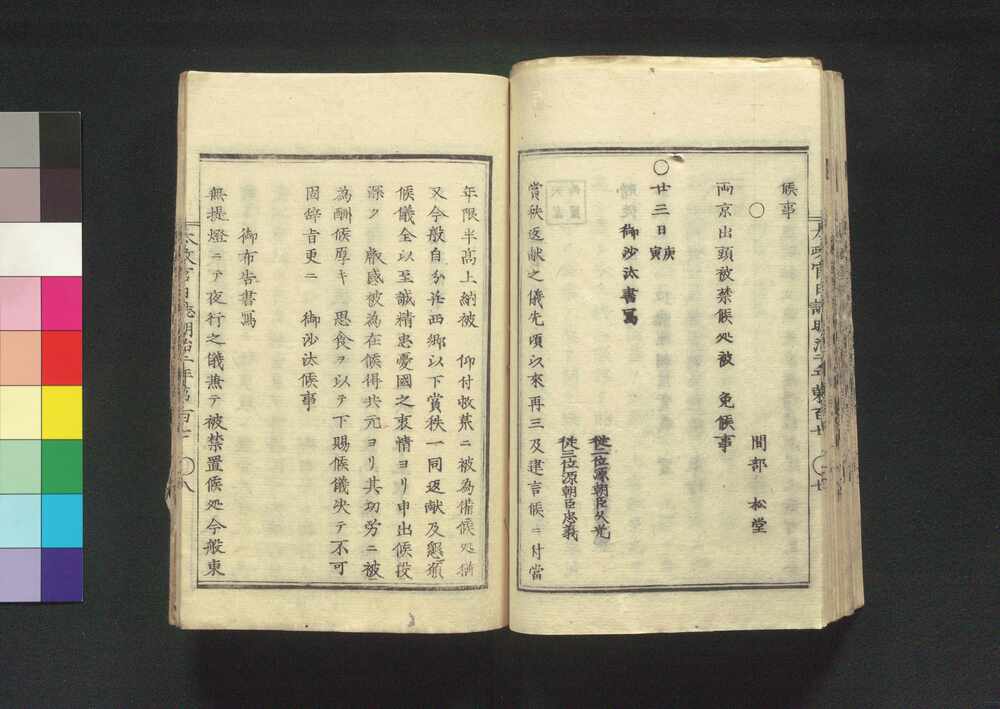 候事
○
間部 松堂
両京出頭被禁候処被 免候事
○廿三日庚寅
御沙汰書寫
従二位源朝臣久光
従三位源朝臣忠義
賞秩返献之儀先頃以來再三及建言候ニ付當
年限半高上納被 仰付救荒ニ被為備候処猶
又今般自分并西郷以下賞秩一同返献及懇願
候儀全以至誠精忠憂國之衷情ヨリ申出候段
深ク 叡感被為在候得共元ヨリ其功労ニ被
為酬候厚キ 思食ヲ以テ下賜候儀决テ不可
固辞旨更ニ 御沙汰候事
御布告書寫
無提燈ニテ夜行之儀兼テ被禁置候処今般東
太政官日誌明治二年第百十
○八